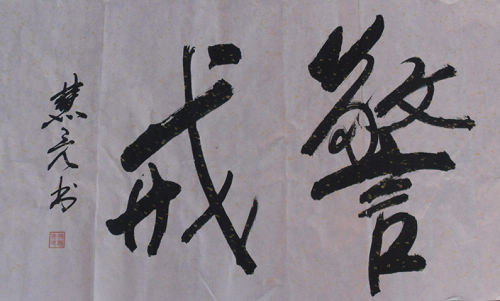 警戒
慧亮书